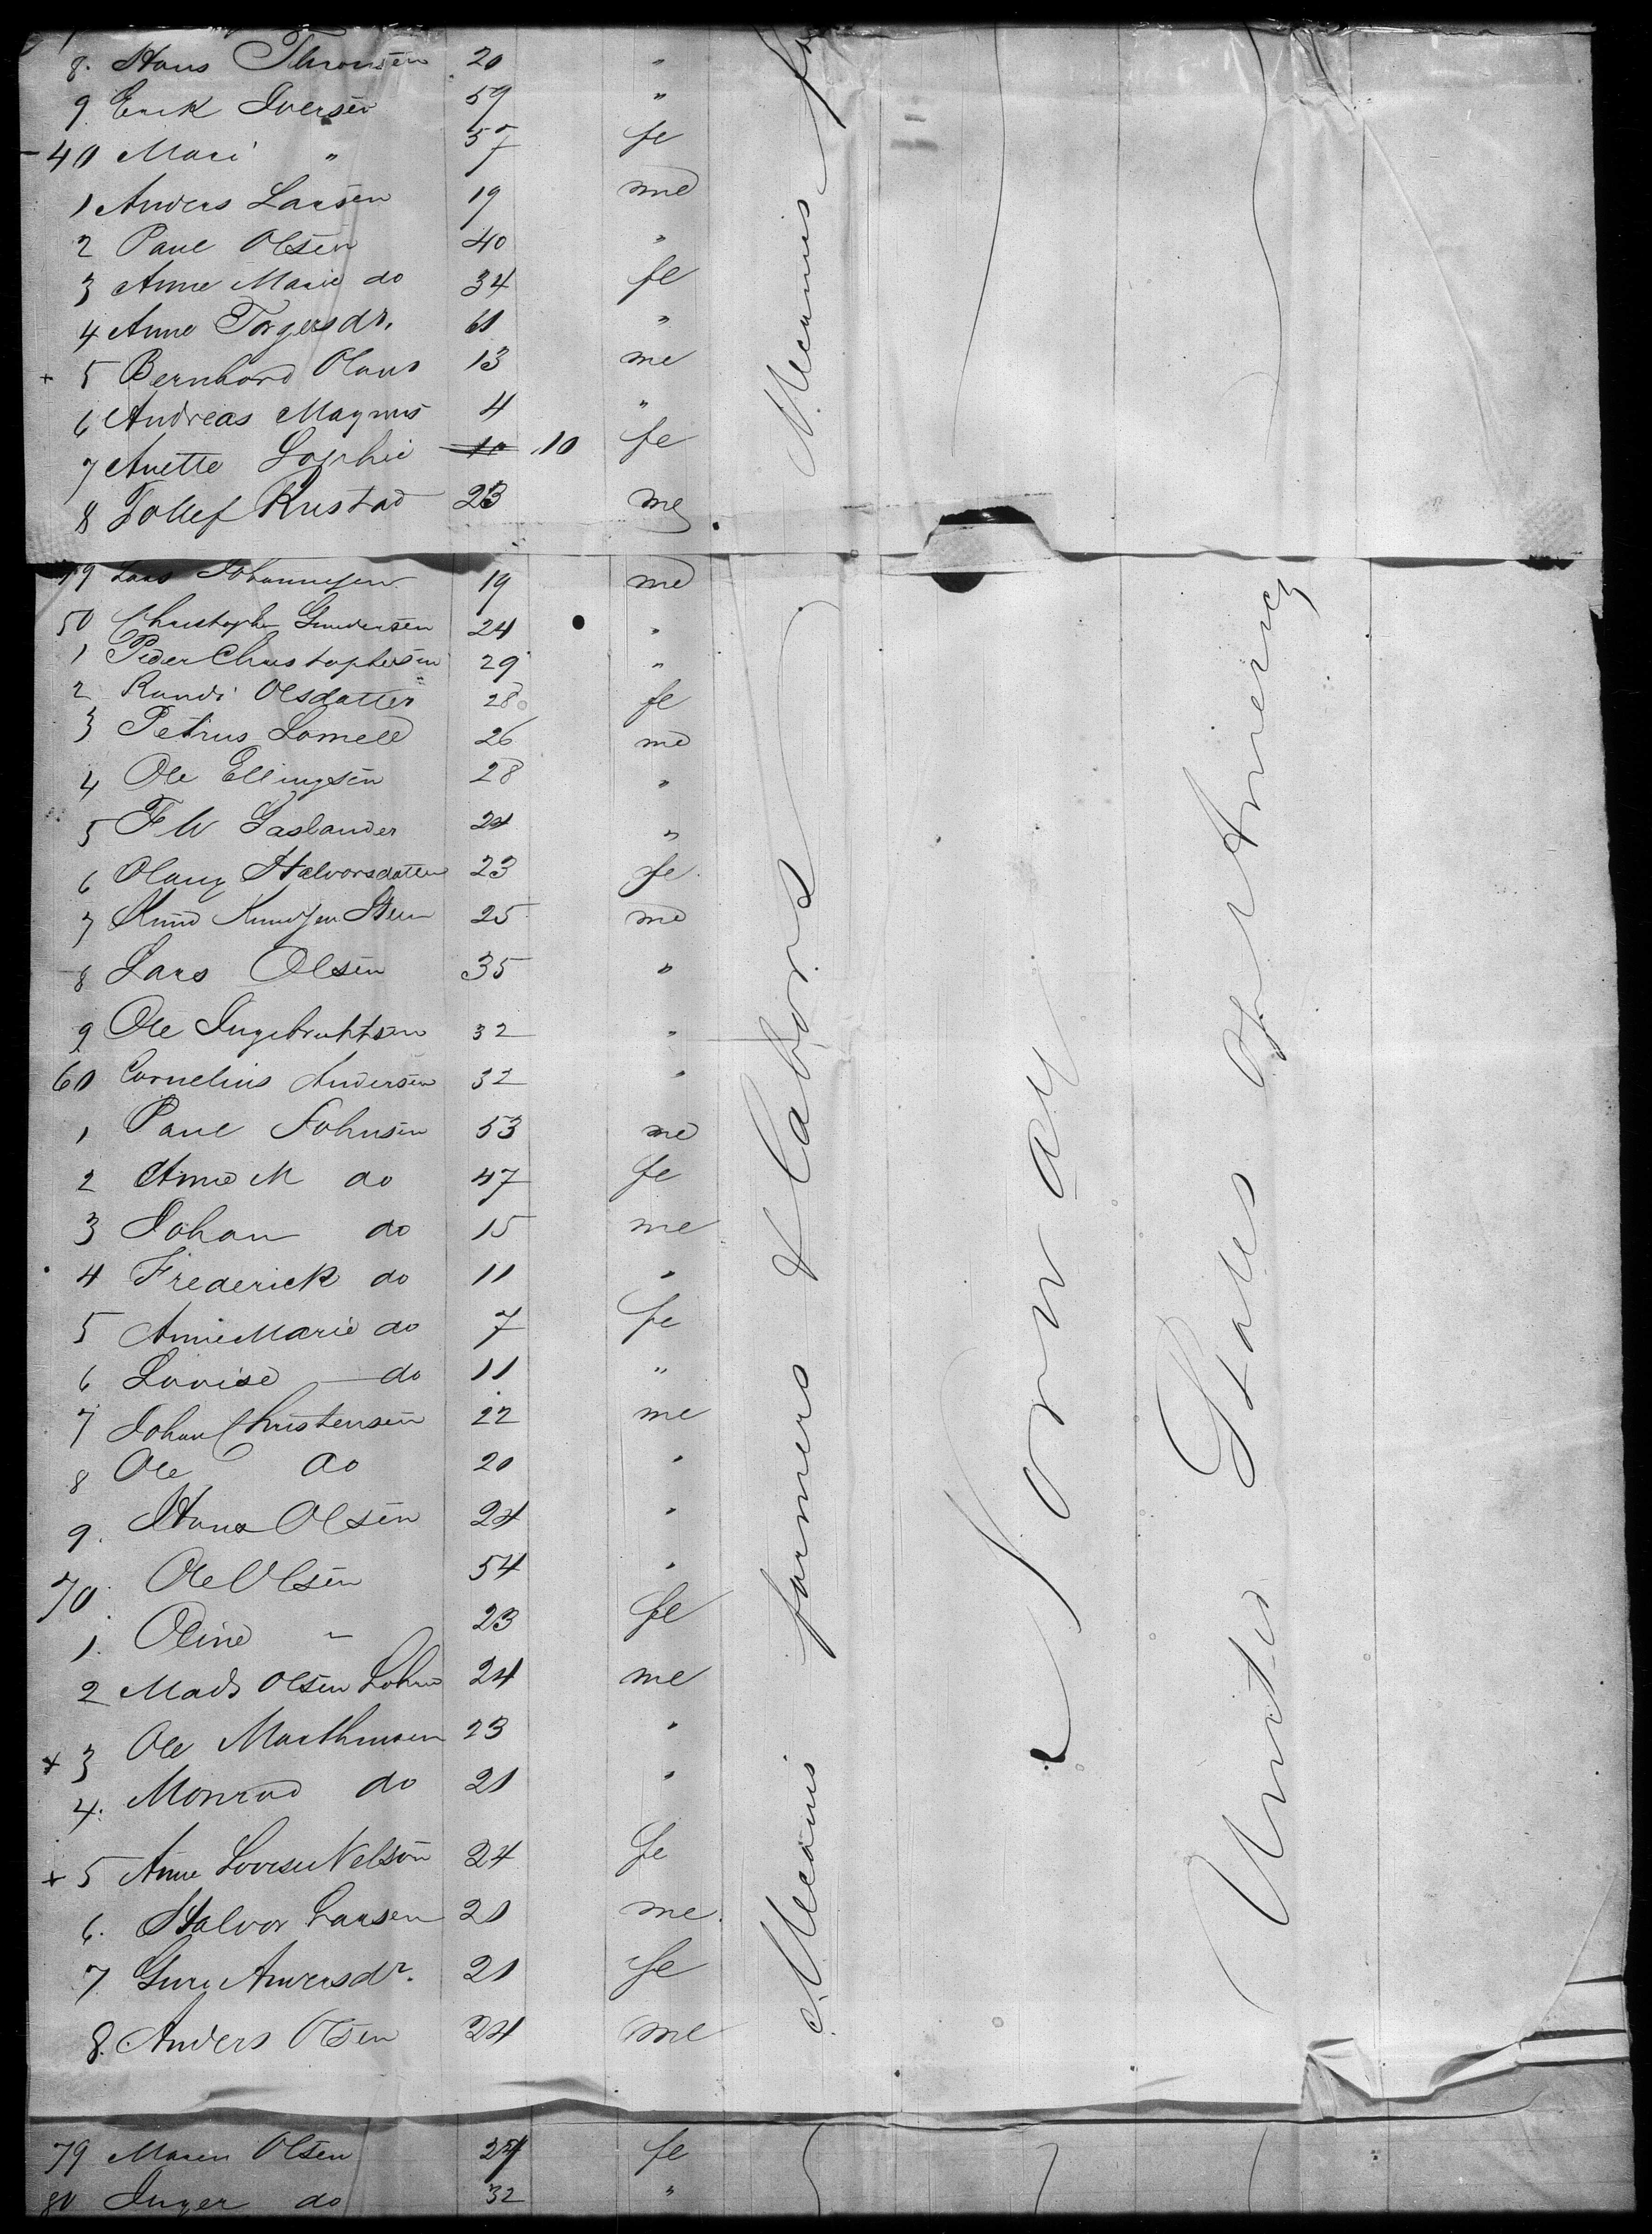 8. Hans Thronsen 20 "
9 Erik Iversen 59 "
40 Mari " 57 fe
1 Anders Larsen 19 me
2 Paul Olsen 40 "
3 Anne Marie do 34 fe
4 Anne Torgersdr. 61 "
+ 5 Bernhard Olaus 13 me
6 Andreas Magnus 4 "
7 Anette Sophie 10 10 fe
8 Tollef Rustad 23 me
49 Lars Johannesen 19 me
50 Christopher Gundersen 24 "
1 Peder Christophersen 29 "
2 Randi Olsdatter 28 fe
3 Petrus Lomell 26 me
4 Ole Ellingsen 28 "
5 F W Gaslander 24 "
6 Olaug Halvorsdatter 23 fe
7 Knud Knudsen 25 me
8 Lars Olsen 35 "
9 Ole Ingebrughtsen 32 "
60 Cornelius Andersen 32 "
1 Paul Johnsen 53 me
2 Anne M do 47 fe
3 Johan do 15 me
4 Frederick do 11 "
5 Anne Marie do 7 fe
6 Lovise do 11 "
7 Johan Christensen 22 me
8 Ole do 20 "
9. Hans Olsen 24 "
70. Ole Olsen 54 "
1. Oline " 23 fe
2 Mads Olsen 24 me
+ 3 Ole Marthinsen 23 "
4. Monrad do 21 "
+ 5 Anne Lovise Nelson 24 fe
6. Halvor Larsen 21 me
7 Guri Andersdr. 21 fe
8. Anders Olsen 24 me
79 Maren Olsen 24 fe
80 Inger do 32 "
Mecanics farmers & Labors
Norway
United States of America